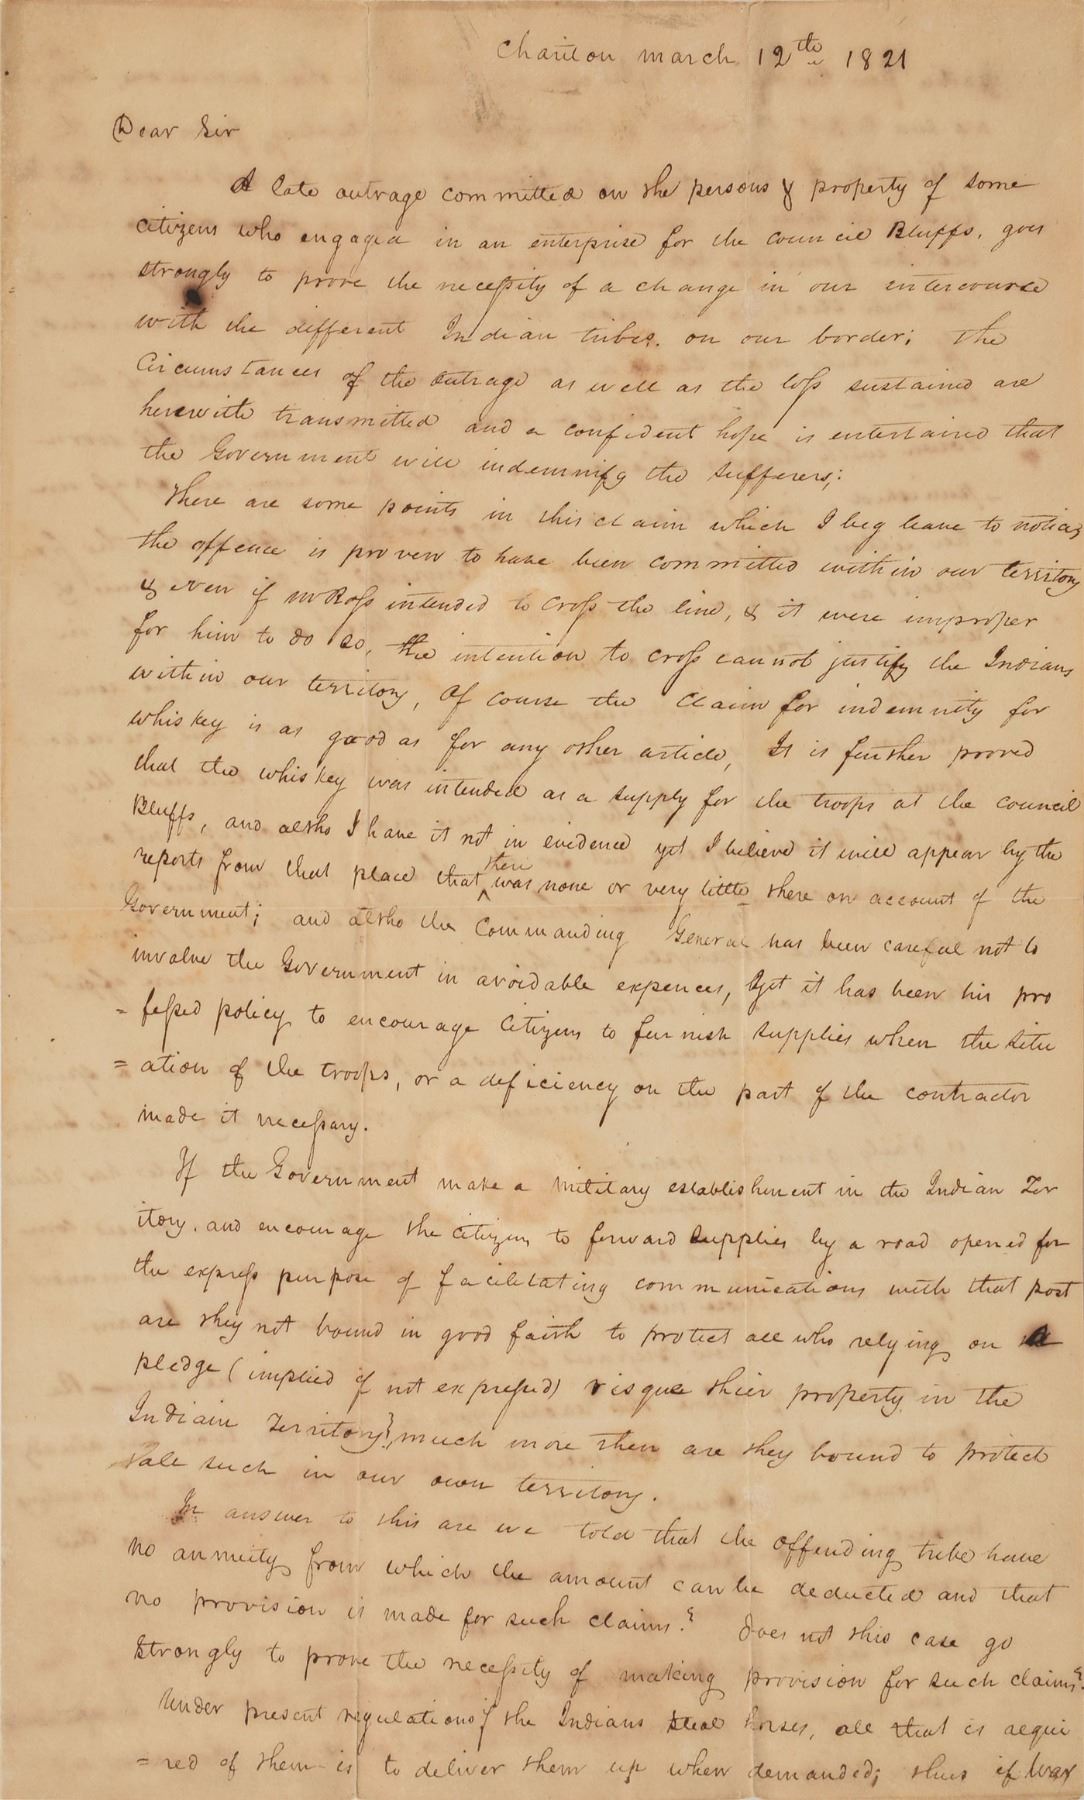 Chariton march 12th 1821
Dear Sir
A late outrage committed on the persons & property of some
citizens who engaged in an enterprise for the council Bluffs, goes
strongly to prove the necessity of a change in our intercourse
with the different Indian tribes. on our border; the
Circumstances of the outrage as well as the loss sustained are
herewith transmitted and a confident hope is entertained that
the Government will indemnify the sufferers;
There are some points in this claim which I beg leave to notice;
the offence is proven to have been committed within our territory
& even if mr Ross intended to cross the line, & it were improper
for him to do so, the intention to cross cannot justify the Indians
within our territory, Of course the Claim for indemnity for
whiskey is as good as for any other article, It is further proved
that the whiskey was intended as a supply for the troops at the council
Bluffs, and altho I have it not in evidence yet I believe it will appear by the
reports from that place that there was none or very little there on account of the
Government; and altho the Commanding General has been careful not to
involve the Government in avoidable expences, yet it has been his pro
= fessed policy to encourage Citizens to furnish supplies when the situ
= ation of the troops, or a deficiency on the part of the contractor
made it necessary.
If the Government make a military establishment in the Indian Ter
itory. and encourage the citizens to forward supplies by a road opened for
the express purpose of facilitating communications with that post
are they not bound in good faith to protect all who relying on a
pledge (implied if not expressed) risque thier property in the
Indian Territory? much more then are they bound to protect
such in our own territory.
In answer to this are we told that the offending tribe have
no annuity from which the amount can be deducted and that
no provision is made for such claims? Does not this case go
strongly to prove the necessity of making provision for such claims?
Under present regulations if the Indians steal horses, all that is requi
= red of them is to deliver them up when demanded; thus if War